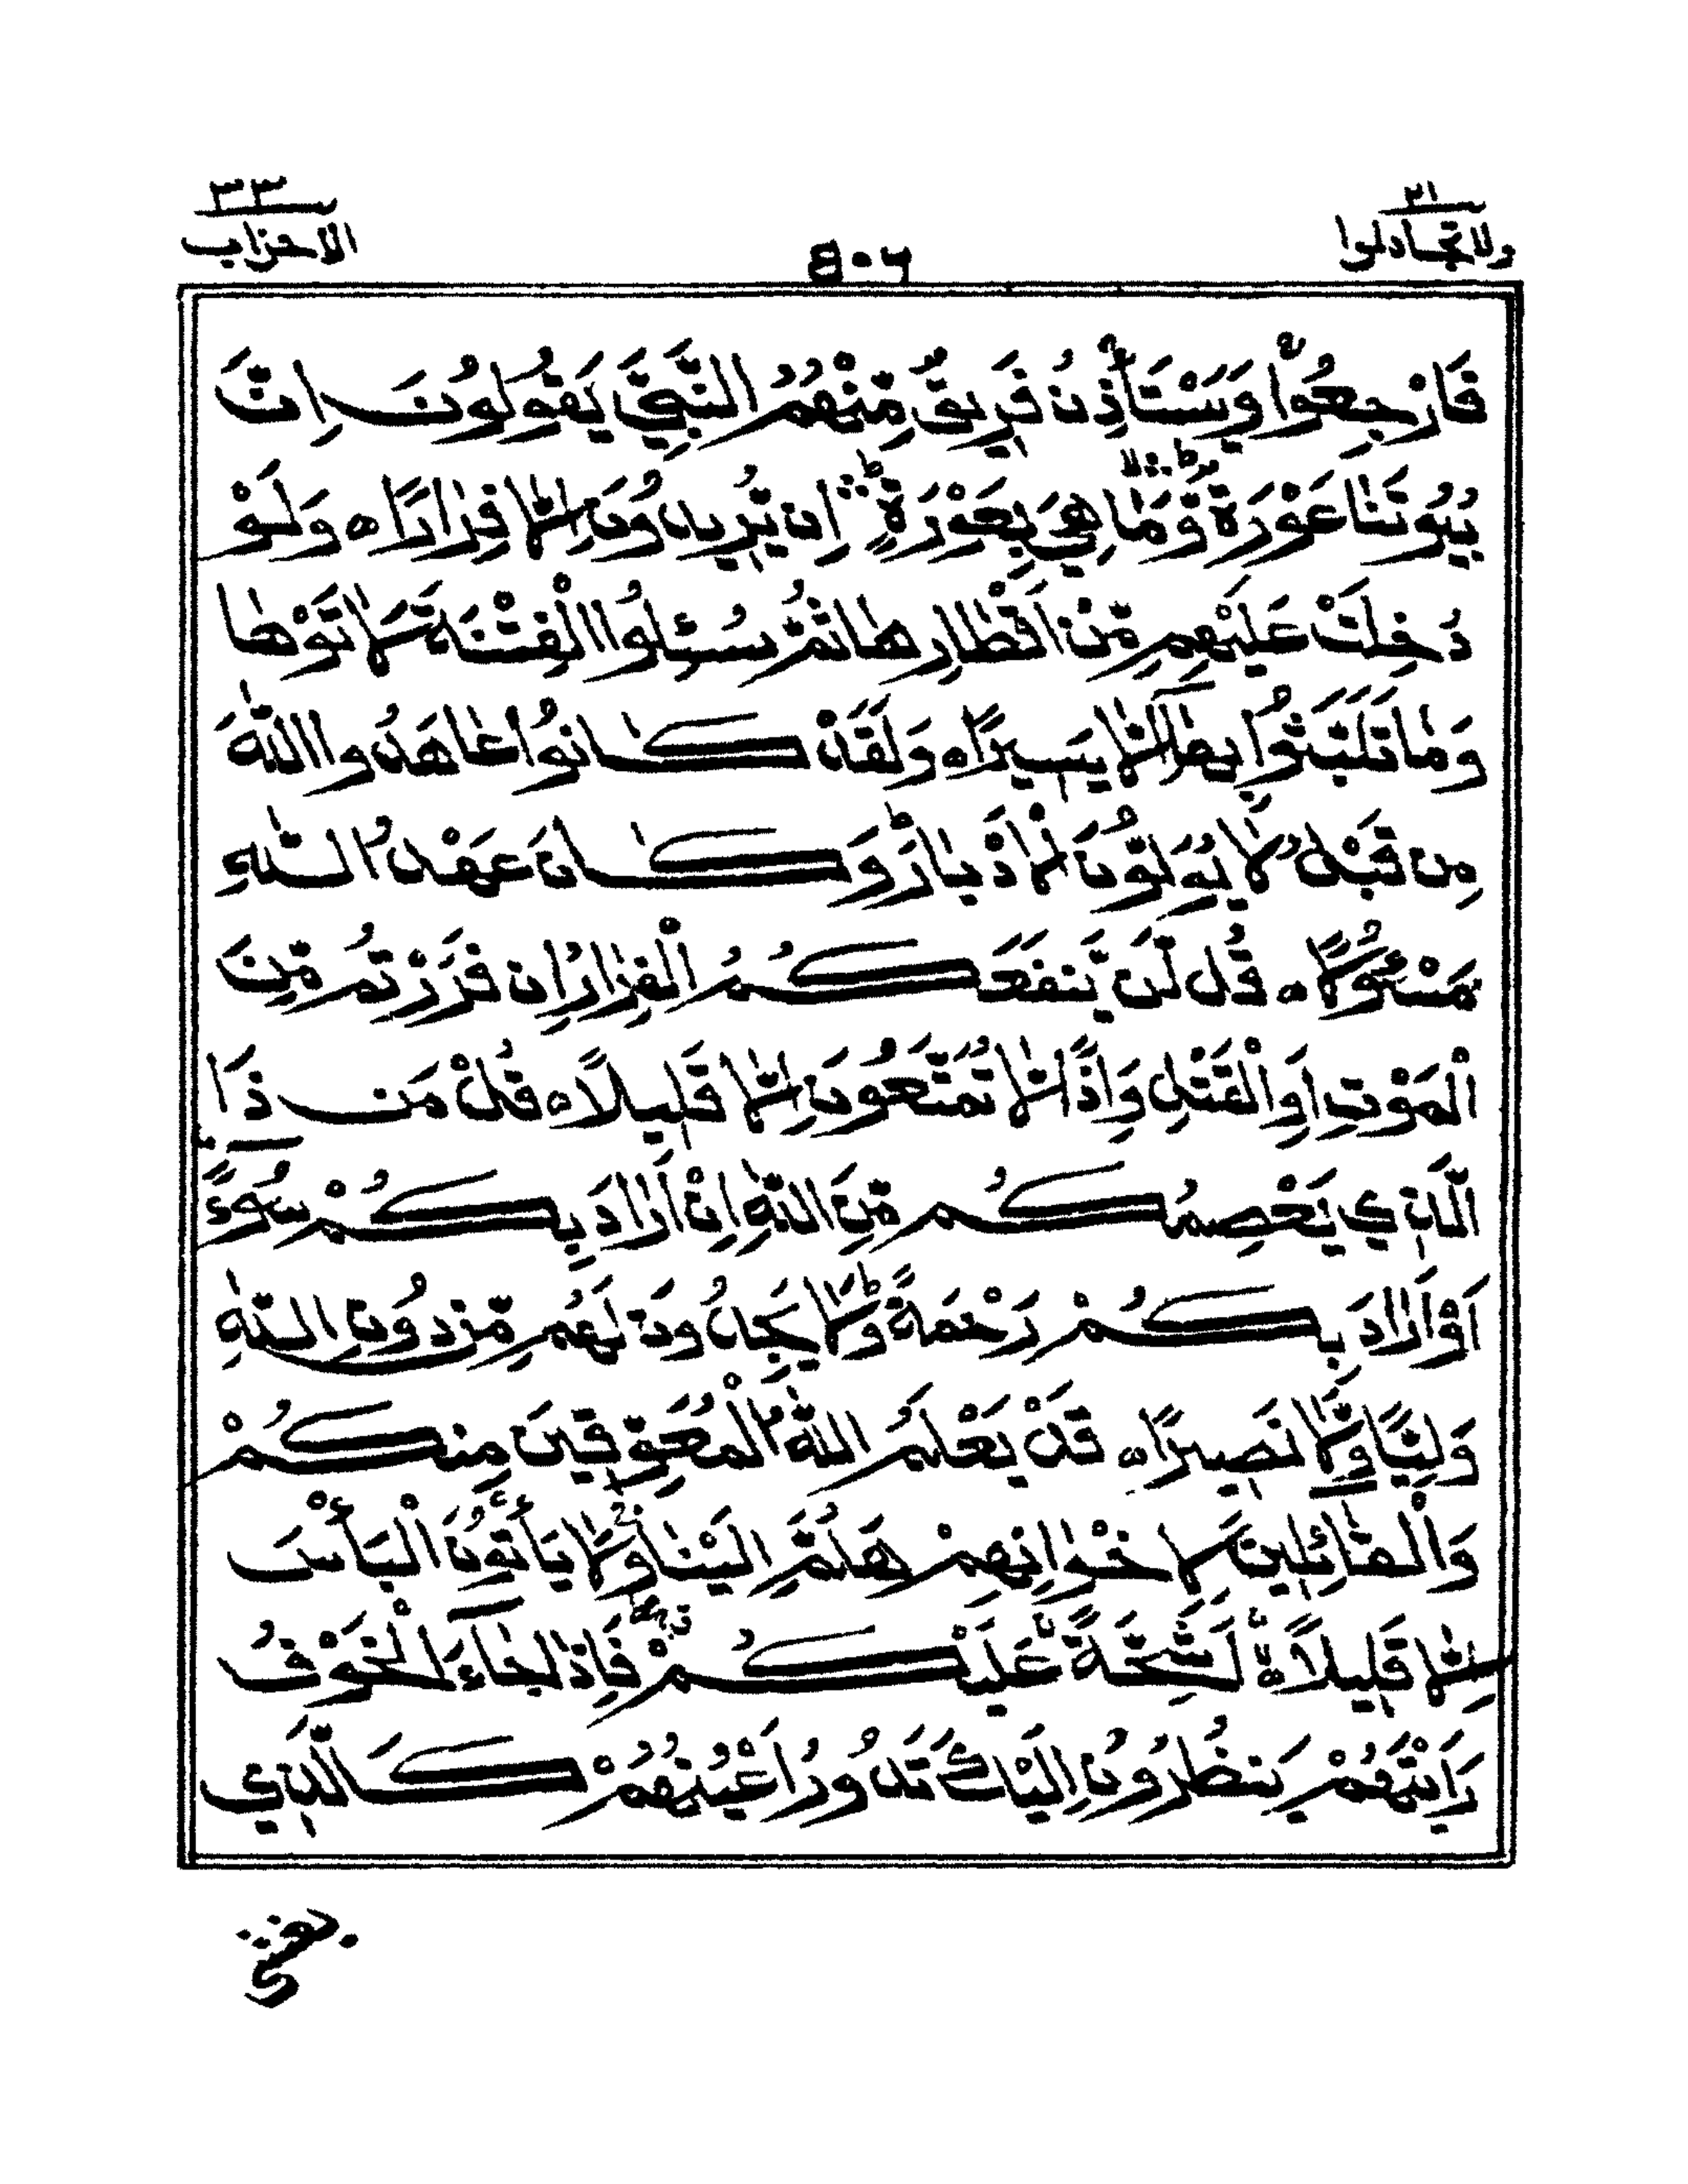 ٢١
ولا تجادلوا
٤٠٦
٣٣
الاحزاب
فَارْجِعُوْا وَيَسْتَأْذِنُ فَرِيقٌ مِّنْهُمُ النَّبِيَّ يَقُولُونَ اِنَّ
بُيُوتَنَا عَوْرَةٌ وَّمَا هِيَ بِعَوْرَةٍ ۛؕ اِن يُّرِيدُونَ اِلَّا فِرَارًا ه وَلَوْ
دُخِلَتْ عَلَيْهِم مِّنْ اَقْطَارِهَا ثُمَّ سُئِلُوا الْفِتْنَةَ لَاٰتَوْهَا
وَمَا تَلَبَّثُوا بِهَآ اِلَّا يَسِيرًا ه وَلَقَدْ كَانُوا عَاهَدُوا اللّٰهَ
مِن قَبْلُ لَا يُوَلُّونَ الْاَدْبَارَ ؕ وَكَانَ عَهْدُ اللّٰهِ
مَسْئُولًا ه قُل لَّن يَّنفَعَكُمُ الْفِرَارُ اِن فَرَرْتُم مِّنَ
الْمَوْتِ اَوِ الْقَتْلِ وَاِذًا لَّا تُمَتَّعُونَ اِلَّا قَلِيلًا ه قُلْ مَن ذَا
الَّذِي يَعْصِمُكُم مِّنَ اللّٰهِ اِنْ اَرَادَ بِكُمْ سُوٓءًا
اَوْ اَرَادَ بِكُمْ رَحْمَةً ؕ وَلَا يَجِدُونَ لَهُم مِّن دُونِ اللّٰهِ
وَلِيًّا وَّلَا نَصِيرًا ه قَدْ يَعْلَمُ اللّٰهُ الْمُعَوِّقِينَ مِنكُمْ
وَالْقَآئِلِينَ لِاِخْوَانِهِمْ هَلُمَّ اِلَيْنَا وَلَا يَأْتُونَ الْبَأْسَ
اِلَّا قَلِيلًا ه اَشِحَّةً عَلَيْكُمْ فَاِذَا جَآءَ الْخَوْفُ
رَاَيْتَهُمْ يَنظُرُونَ اِلَيْكَ تَدُورُ اَعْيُنُهُمْ كَالَّذِي
يغشى